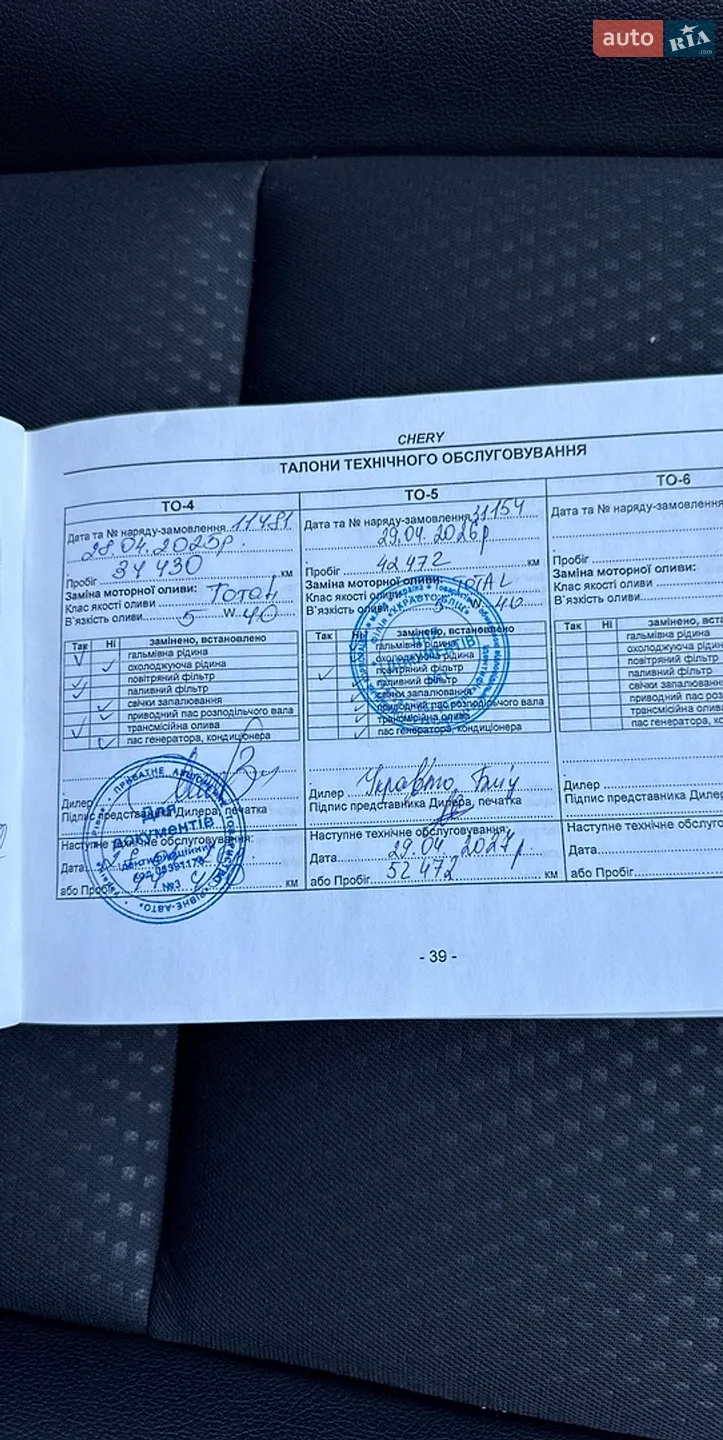 auto RIA .com
CHERY
ТАЛОНИ ТЕХНІЧНОГО ОБСЛУГОВУВАННЯ
ТО-4
Дата та № наряду-замовлення 11481
28.04.2025р.
Пробіг 34 430 км
Заміна моторної оливи:
Клас якості оливи Тотал
В`язкість оливи 5 W 40
Так Ні замінено, встановлено
гальмівна рідина
охолоджуюча рідина
повітряний фільтр
паливний фільтр
свічки запалювання
приводний пас розподільчого вала
трансмісійна олива
пас генератора, кондиціонера
Дилер
Підпис представника Дилера, печатка
Наступне технічне обслуговування:
Дата
або Пробіг км
ПРИВАТНЕ
Для
документів
ідентифікаційний
код 05391173
№3
«РІВНЕ-АВТО»
ТО-5
Дата та № наряду-замовлення 31154
29.04.2026р
Пробіг 42 472 км
Заміна моторної оливи:
Клас якості оливи TOTAL
В`язкість оливи 5 W 40
Так Ні замінено, встановлено
гальмівна рідина
охолоджуюча рідина
повітряний фільтр
паливний фільтр
свічки запалювання
приводний пас розподільчого вала
трансмісійна олива
пас генератора, кондиціонера
Дилер Укравто
Підпис представника Дилера, печатка
Наступне технічне обслуговування:
Дата 29.04.2027р.
або Пробіг 52 472 км
ТО-6
Дата та № наряду-замовлення
Пробіг
Заміна моторної оливи:
Клас якості оливи
В`язкість оливи
Так Ні замінено, вста
гальмівна рідина
охолоджуюча рідин
повітряний фільтр
паливний фільтр
свічки запалювання
приводний пас ро
трансмісійна олив
пас генератора, ко
Дилер
Підпис представника Дилер
Наступне технічне обслуго
Дата
або Пробіг
- 39 -